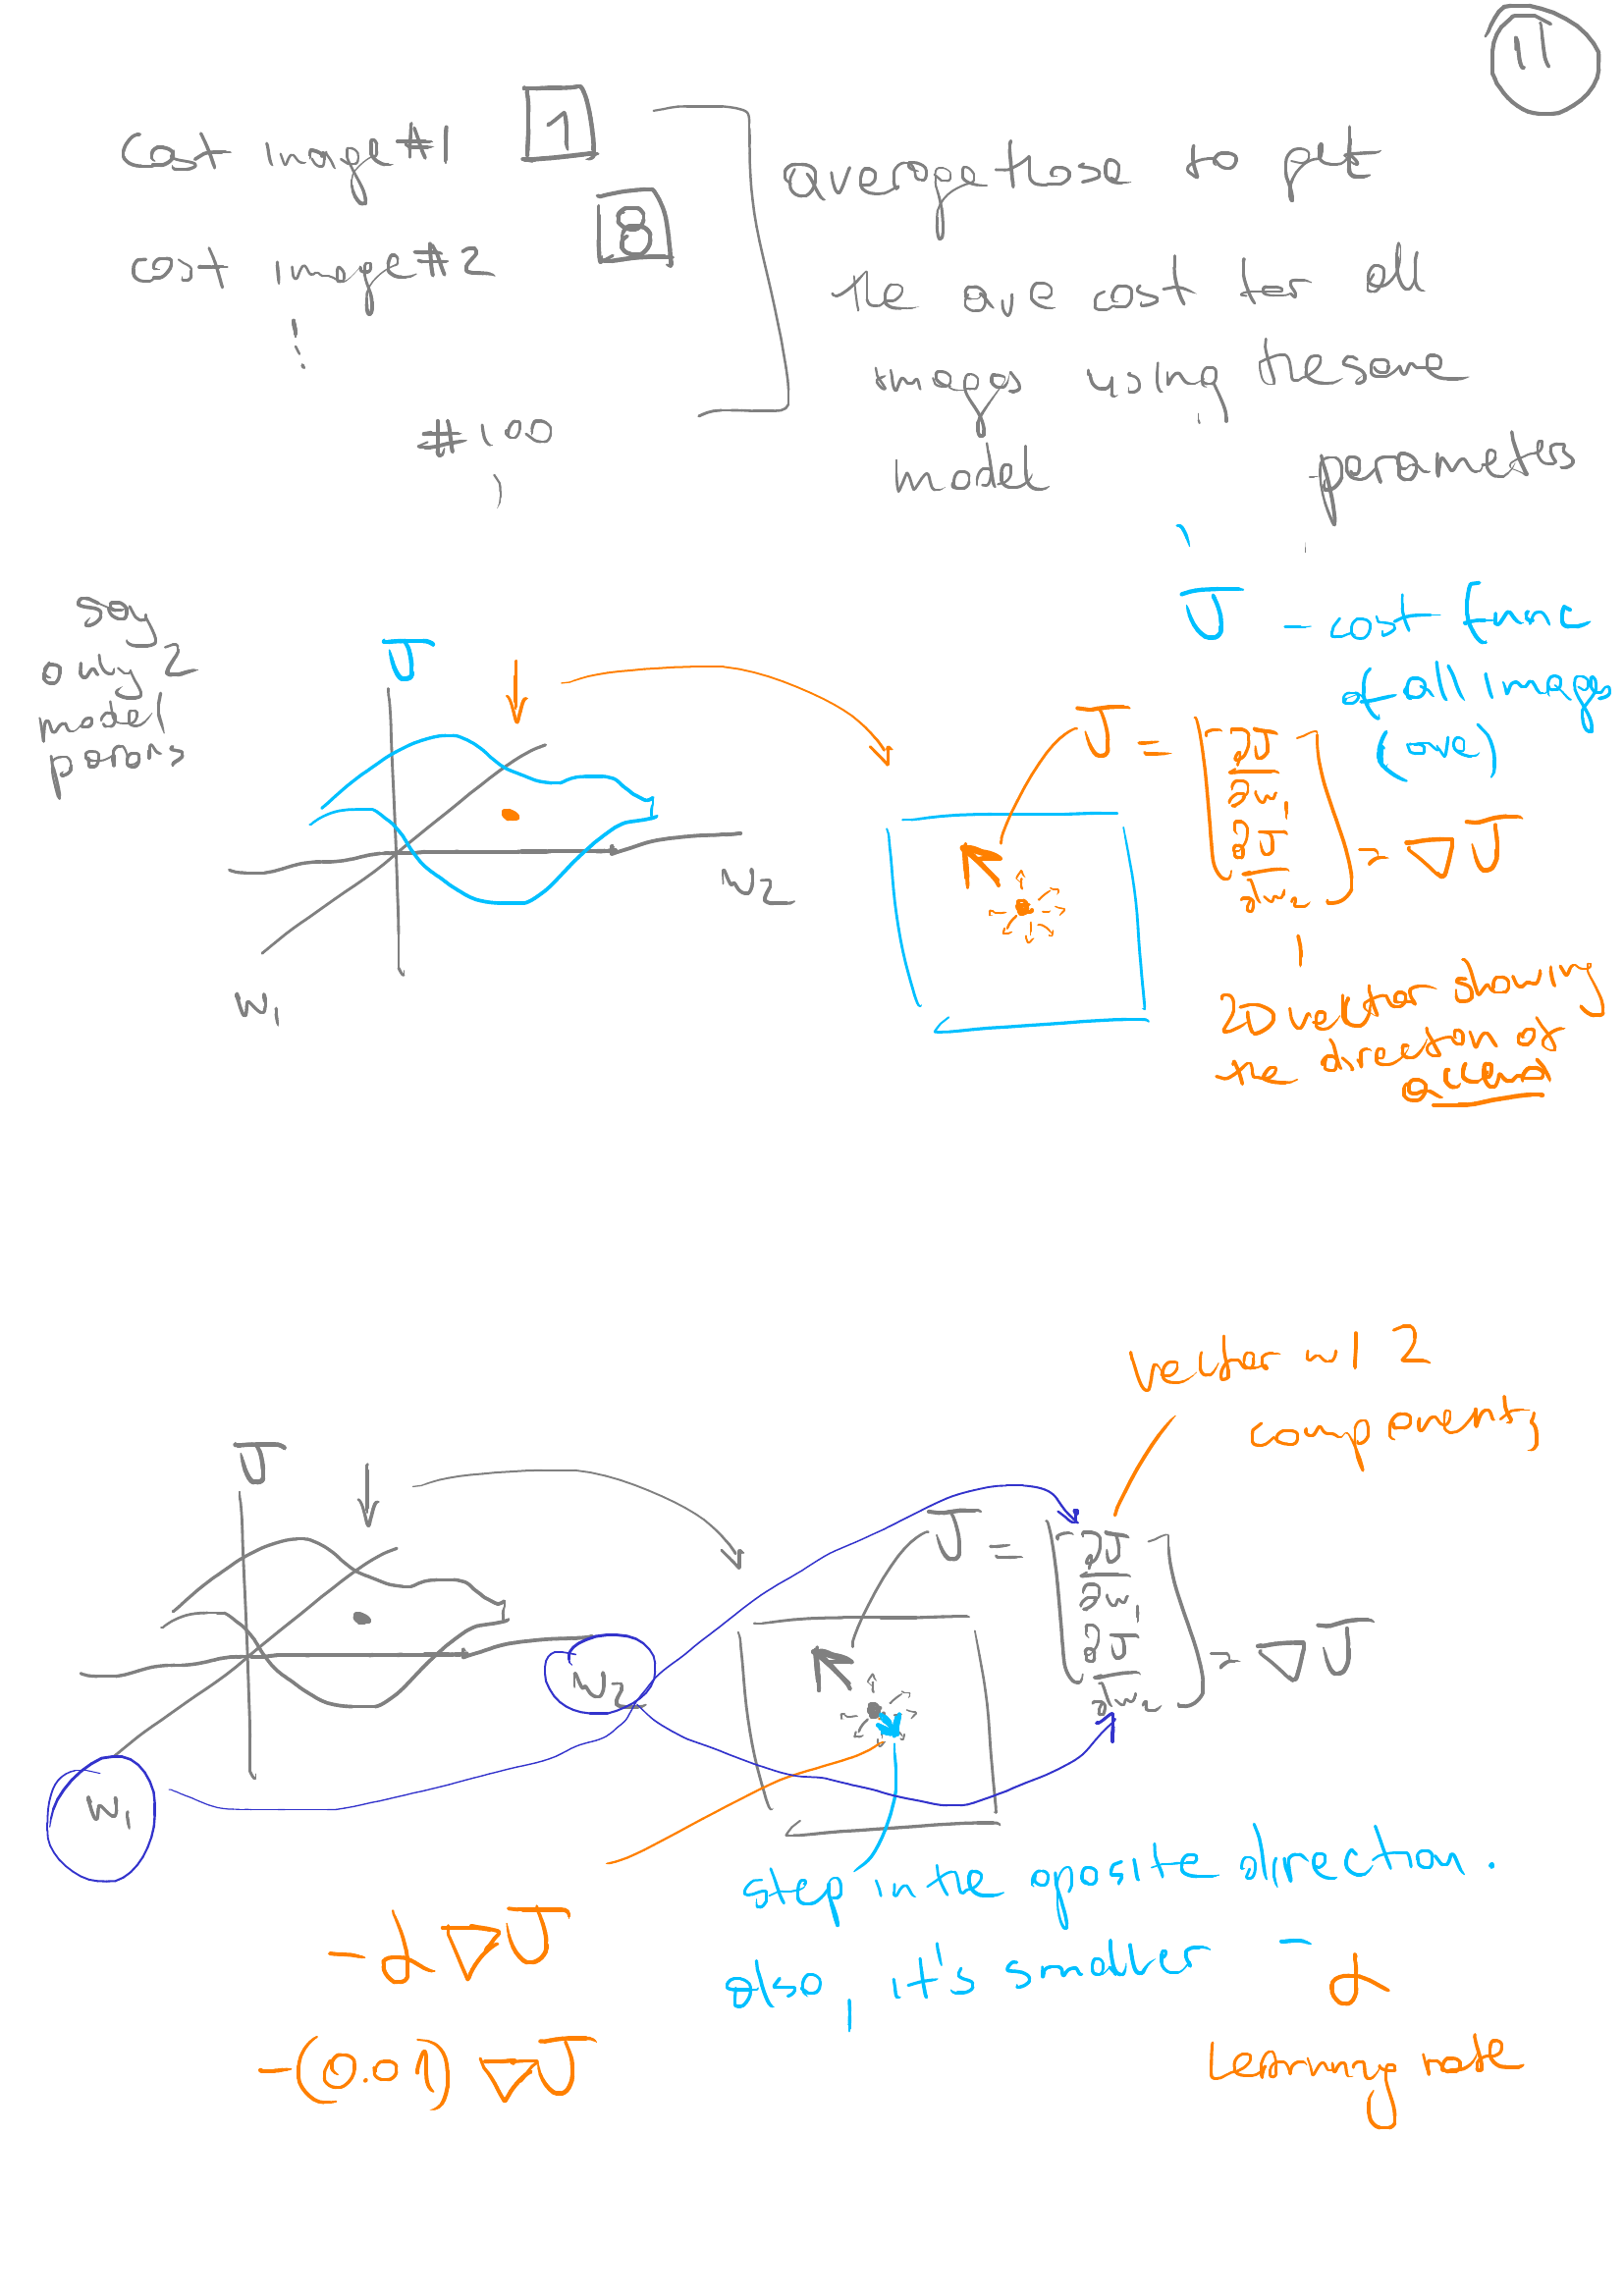 11
cost image #1 1
cost image #2 8
#100
average those to get
the ave cost for all
images using the same
model parameters
J - cost func
of all images
(ave)
say
only 2
model
params
J
w2
w1
J = [∂J/∂w1 ∂J/∂w2] = ∇J
2D vector showing
the direction of
accend
vector w/ 2
components
J
w2
w1
J = [∂J/∂w1 ∂J/∂w2] = ∇J
step in the oposite direction.
also, it's smaller - α
learning rate
-α∇J
-(0.01)∇J